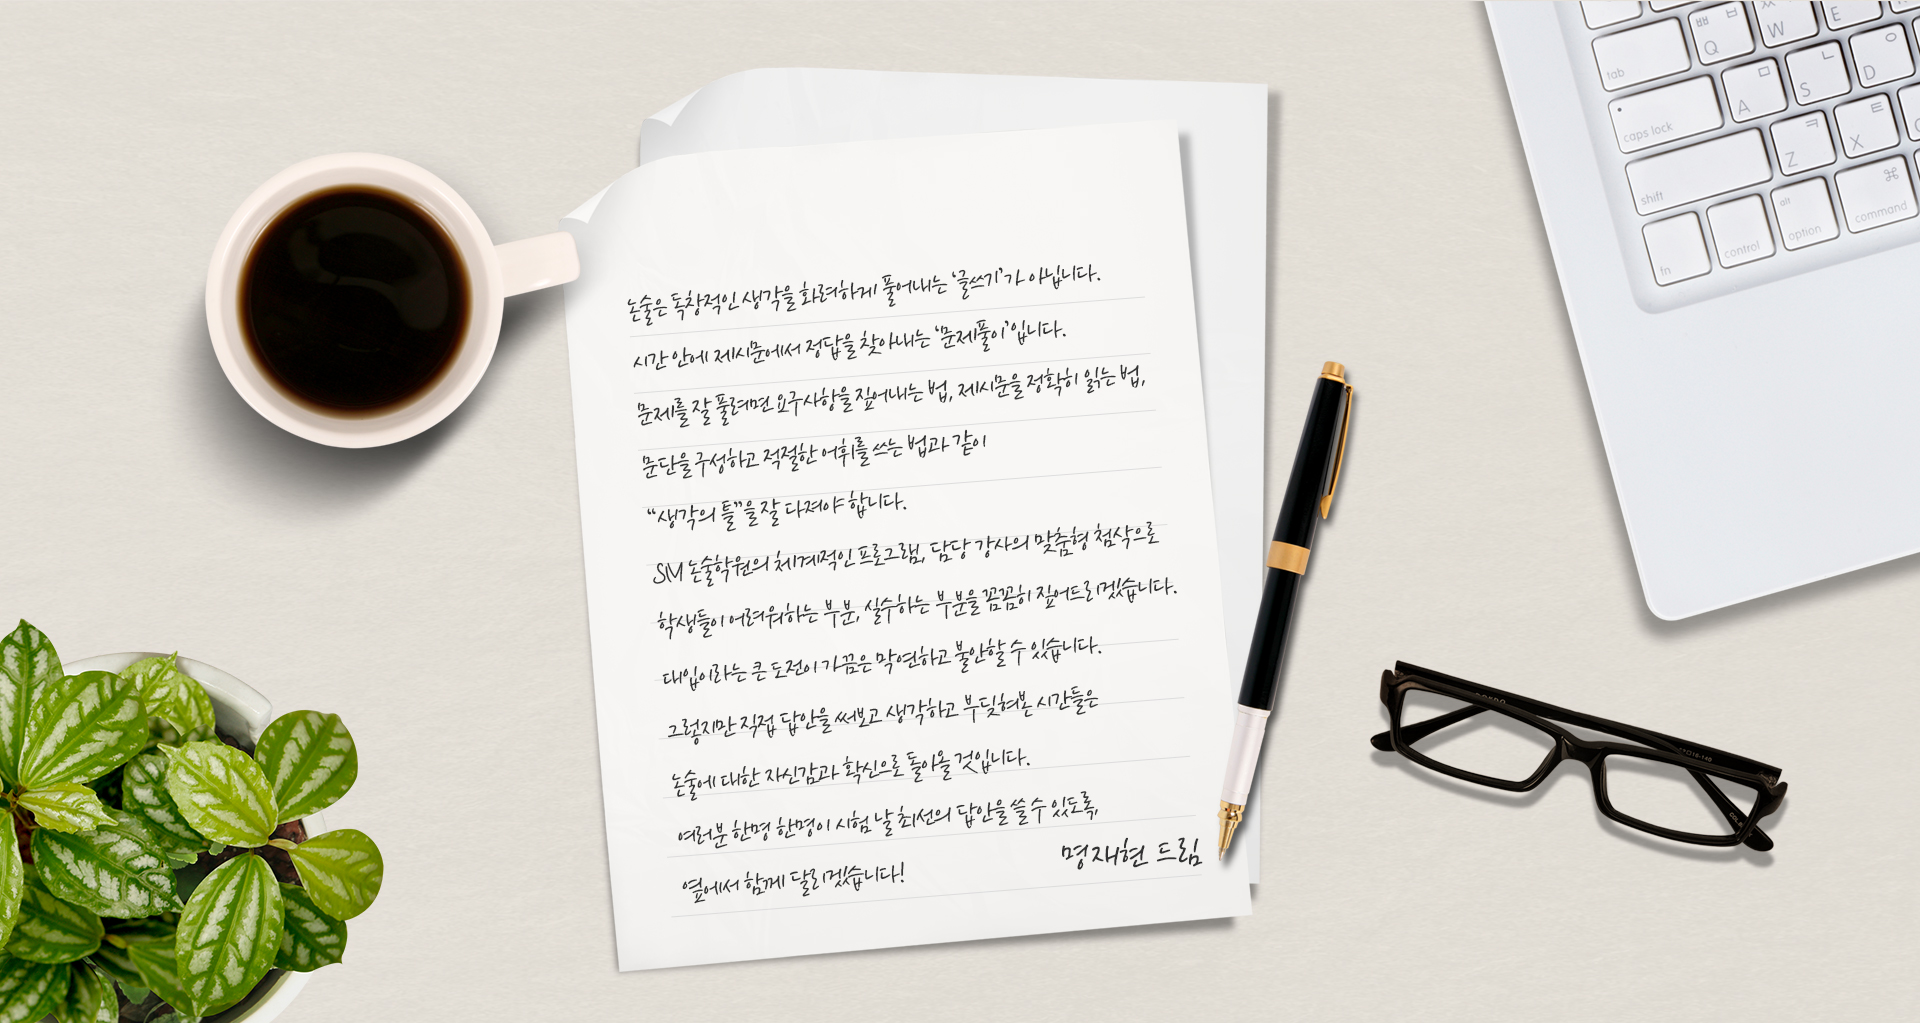 논술은 독창적인 생각을 화려하게 풀어내는 ‘글쓰기’가 아닙니다.
시간 안에 제시문에서 정답을 찾아내는 ‘문제풀이’입니다.
문제를 잘 풀려면 요구사항을 짚어내는 법, 제시문을 정확히 읽는 법,
문단을 구성하고 적절한 어휘를 쓰는 법과 같이
“생각의 틀”을 잘 다져야 합니다.
SM 논술학원의 체계적인 프로그램, 담당 강사의 맞춤형 첨삭으로
학생들이 어려워하는 부분, 실수하는 부분을 꼼꼼히 짚어드리겠습니다.
대입이라는 큰 도전이 가끔은 막연하고 불안할 수 있습니다.
그렇지만 직접 답안을 써보고 생각하고 부딪혀본 시간들은
논술에 대한 자신감과 확신으로 돌아올 것입니다.
여러분 한명 한명이 시험 날 최선의 답안을 쓸 수 있도록,
옆에서 함께 달리겠습니다!
명재현 드림
ㅃ ㅂ Q W E
tab
ㅁ A ㄴ S ㅇ D
caps lock
ㅋ Z ㅌ X
shift
fn control alt option ⌘ command